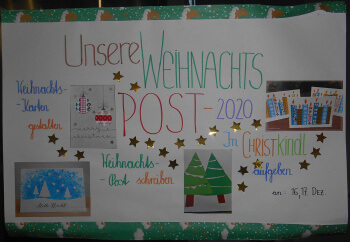 Unsere WEIHNACHTS
POST-2020
Weihnachts-
-Karten
gestalten
Weihnachts-
-Post schreiben
In CHRISTKINDL
aufgeben
am: 16,17. Dez.